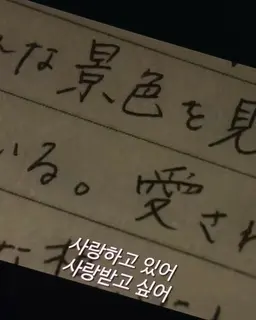 な景色を見
いる。愛され
사랑하고 있어
사랑받고 싶어